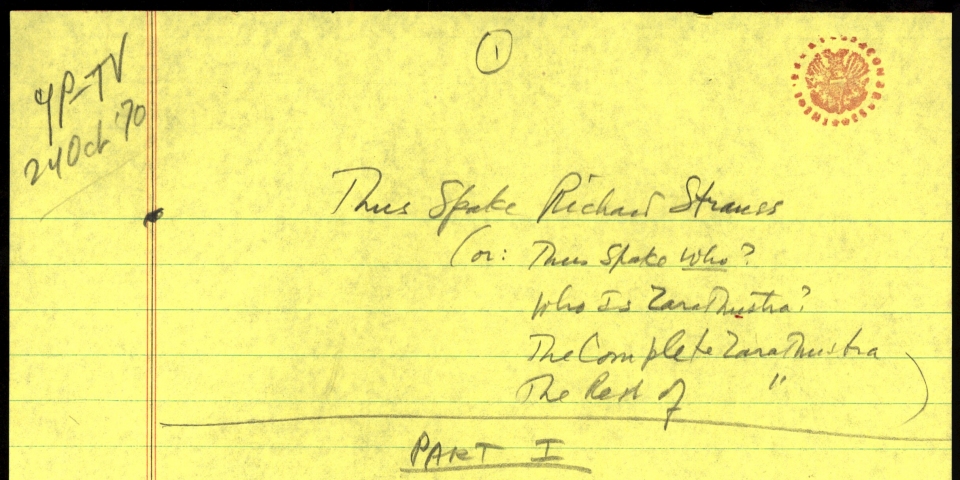 ①
YP-TV
24 Oct '70
Thus Spake Richard Strauss
(or: Thus Spake Who?
Who Is Zarathustra?
The Complete Zarathustra
The Rest of ")
PART I